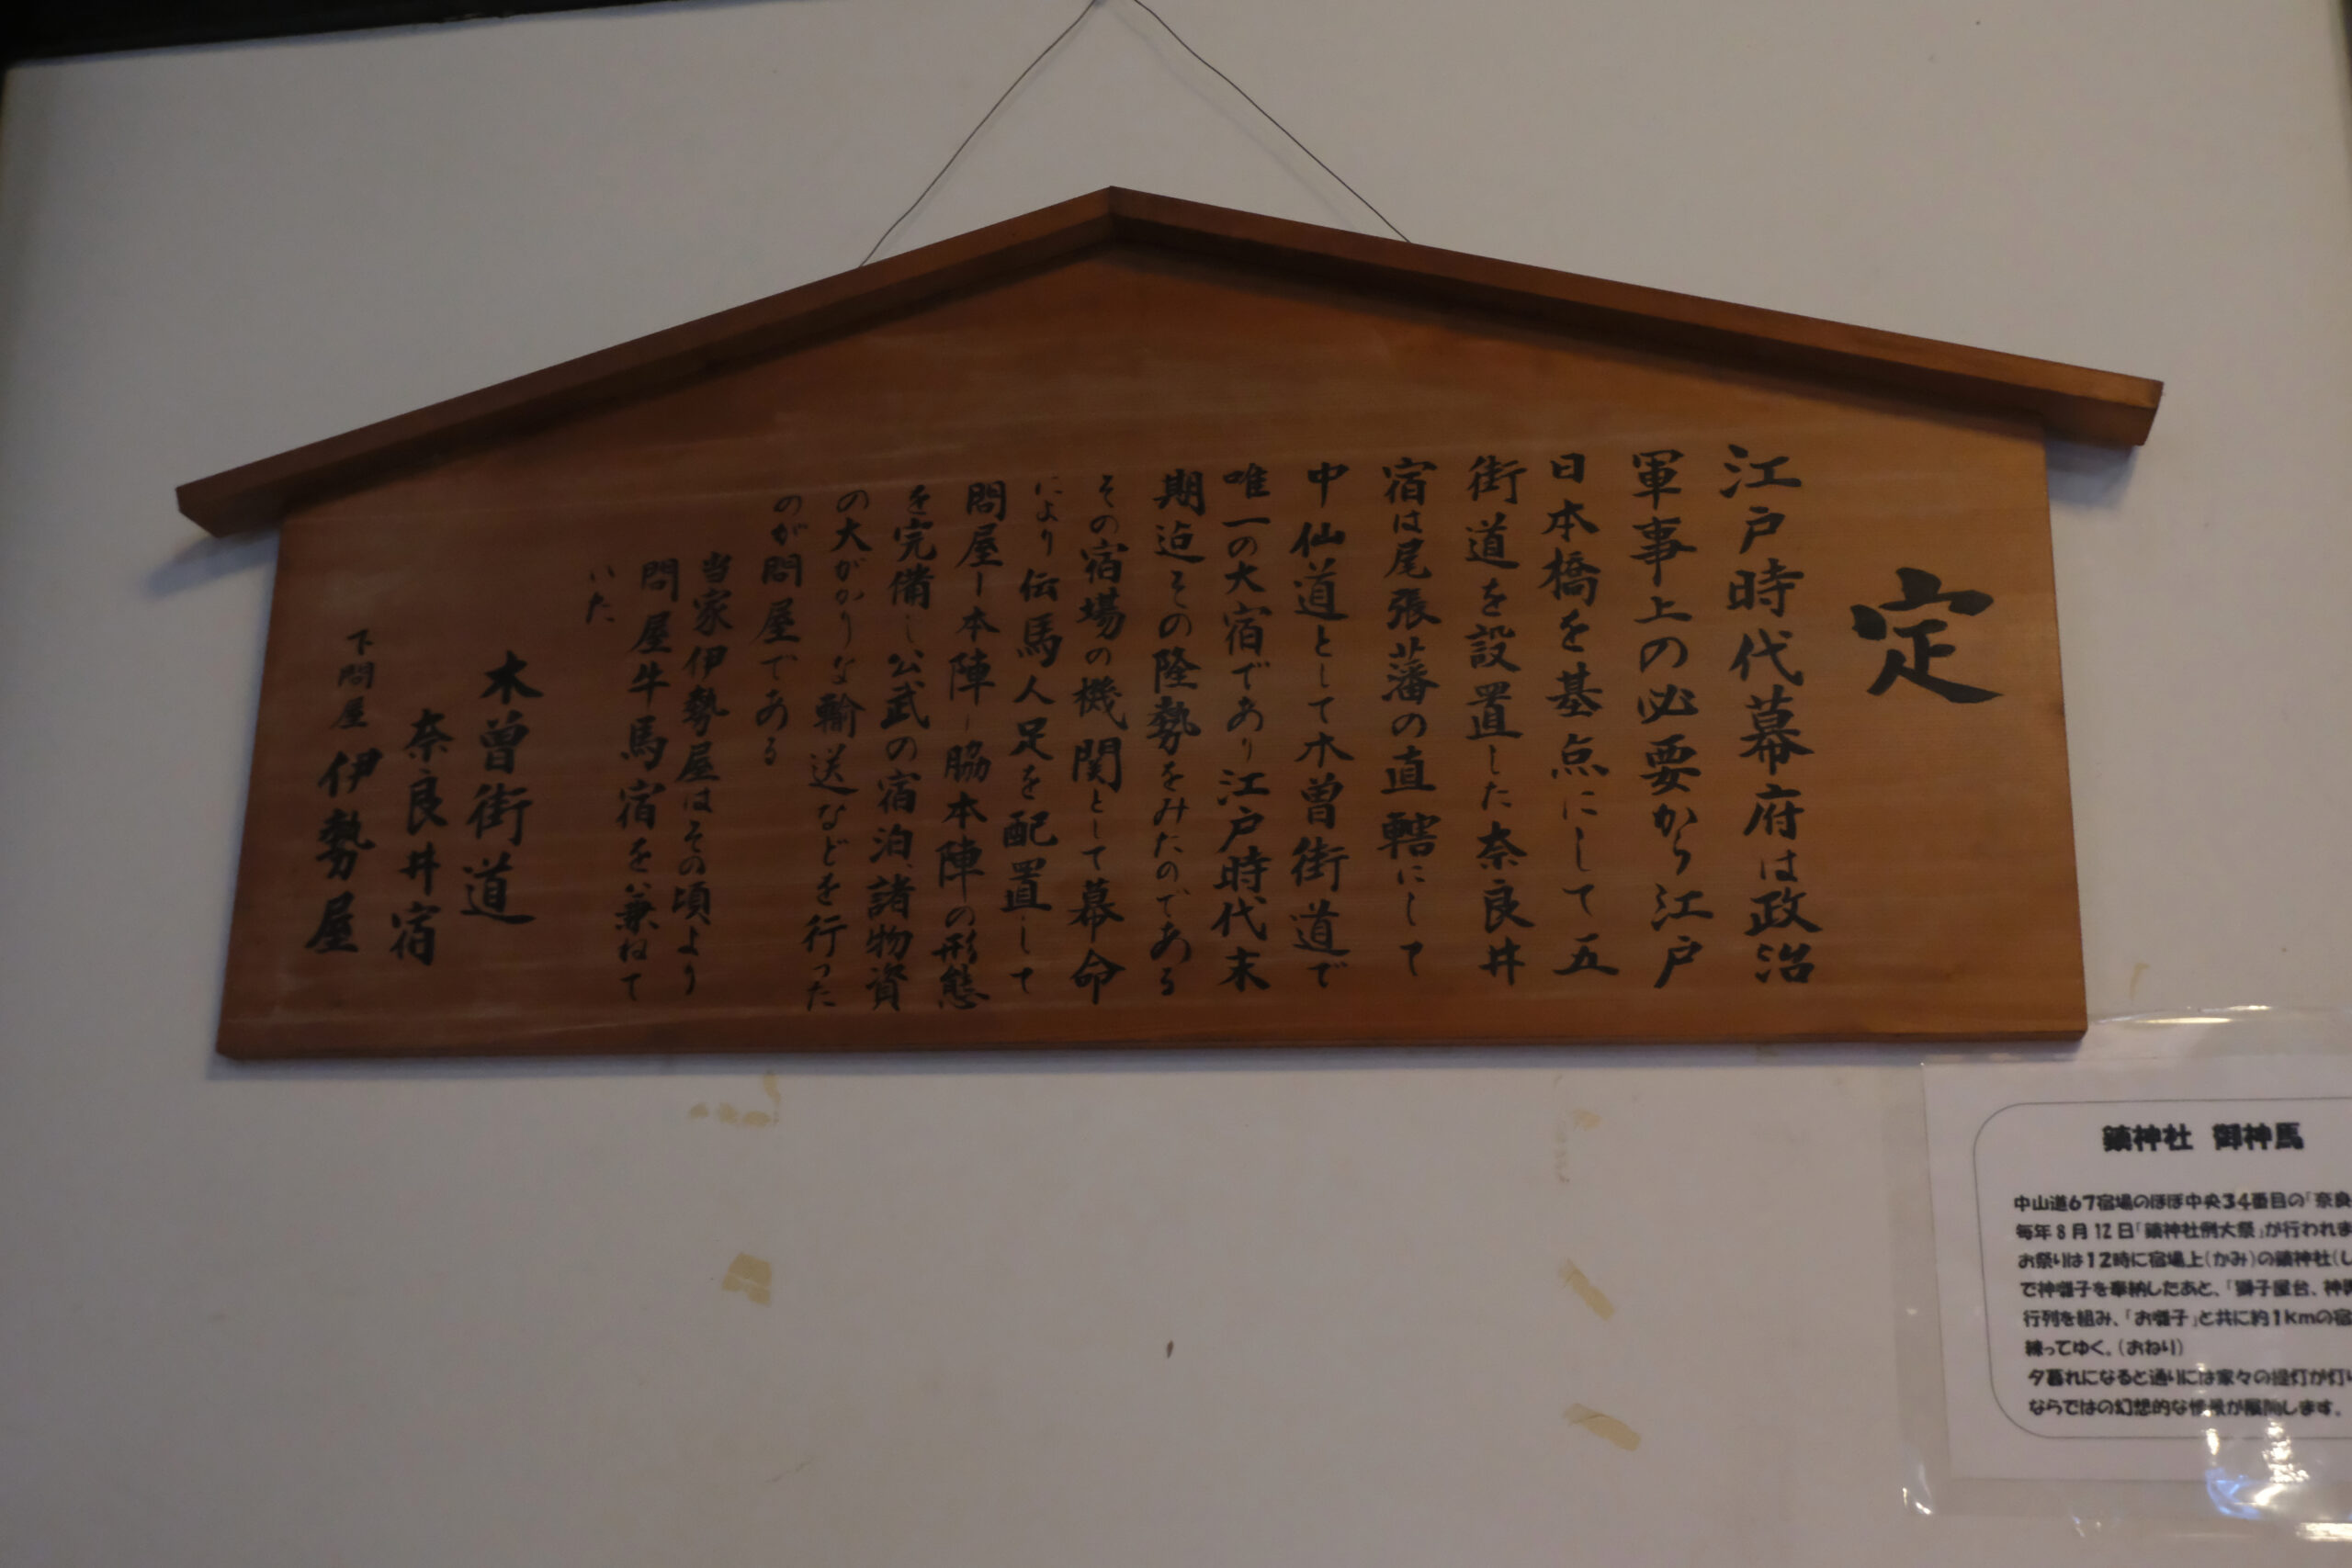 定
江戸時代幕府は政治
軍事上の必要から江戸
日本橋を基点にして五
街道を設置した奈良井
宿は尾張藩の直轄にして
中仙道として木曽街道で
唯一の大宿であり江戸時代末
期迄その隆勢をみたのである
その宿場の機関として幕命
により伝馬人足を配置して
問屋ー本陣ー脇本陣の形態
を完備し公武の宿泊、諸物資
の大がかりな輸送などを行った
のが問屋である
当家伊勢屋はその頃より
問屋牛馬宿を兼ねて
いた
木曽街道
奈良井宿
下問屋 伊勢屋
鎮神社 御神馬
中山道67宿場のほぼ中央34番目の「奈良
毎年8月12日「鎮神社例大祭」が行われま
お祭りは12時に宿場上(かみ)の鎮神社(し
で神囃子を奉納したあと、「獅子屋台、神
行列を組み、「お囃子」と共に約1kmの宿
練ってゆく。(おねり)
夕暮れになると通りには家々の提灯が灯り
ならではの幻想的な情景が展開します。